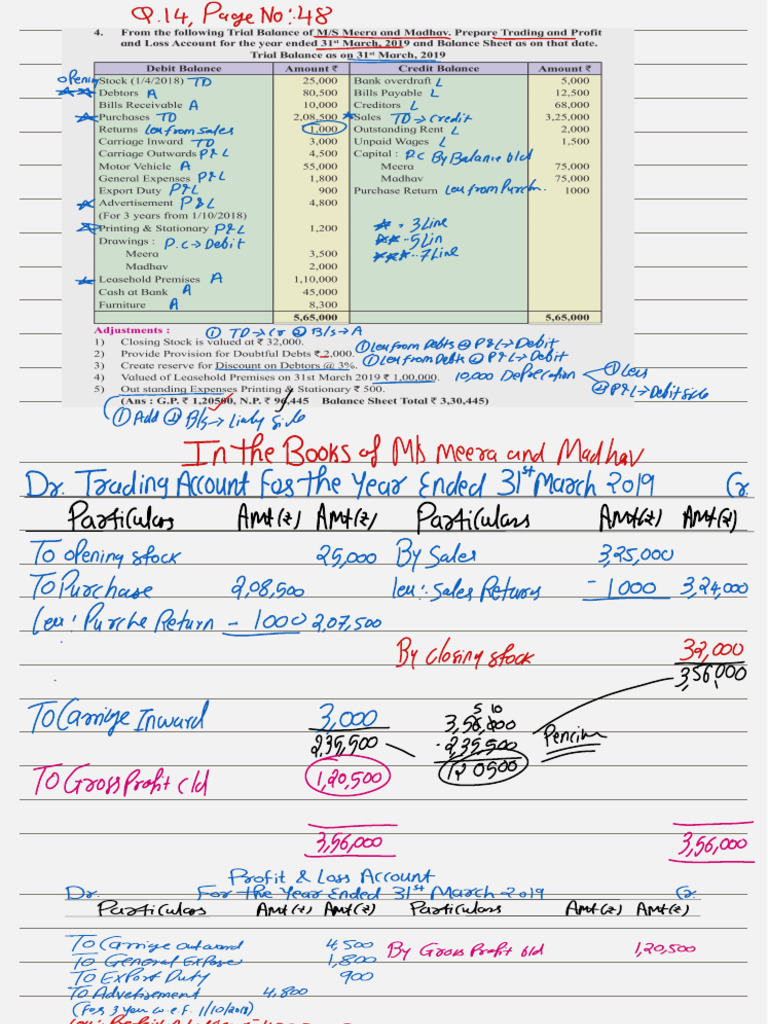 Q.14, Page No:48
4. From the following Trial Balance of M/S Meera and Madhav. Prepare Trading and Profit
and Loss Account for the year ended 31st March, 2019 and Balance Sheet as on that date.
Trial Balance as on 31st March, 2019
Debit Balance Amount ₹ Credit Balance Amount ₹
opening Stock (1/4/2018) TD 25,000 Bank overdraft L 5,000
Debtors A 80,500 Bills Payable L 12,500
Bills Receivable A 10,000 Creditors L 68,000
Purchases TD 2,08,500 Sales TD → Credit 3,25,000
Returns Less from sales 1,000 Outstanding Rent L 2,000
Carriage Inward TD 3,000 Unpaid Wages L 1,500
Carriage Outwards P&L 4,500 Capital : P.C By Balance b/d
Motor Vehicle A 55,000 Meera 75,000
General Expenses P&L 1,800 Madhav 75,000
Export Duty P&L 900 Purchase Return Less from Purch. 1000
Advertisement P&L 4,800
(For 3 years from 1/10/2018)
Printing & Stationary P&L 1,200
Drawings : P.C → Debit
Meera 3,500
Madhav 2,000
Leasehold Premises A 1,10,000
Cash at Bank A 45,000
Furniture A 8,300
5,65,000 5,65,000
* . 3 Line
** .. 5 Lin
*** .. 7 Line
Adjustments : ① TD → Cr ② B/s → A
1) Closing Stock is valued at ₹ 32,000.
① Less from Debts ② P&L → Debit
2) Provide Provision for Doubtful Debts ₹ 2,000.
① Less from Debts ② P&L → Debit
3) Create reserve for Discount on Debtors @ 3%.
4) Valued of Leasehold Premises on 31st March 2019 ₹ 1,00,000. 10,000 Depreciation ① Less
② P&L → Debit side
5) Out standing Expenses Printing & Stationary ₹ 500.
(Ans : G.P. ₹ 1,20500, N.P. ₹ 96,445 Balance Sheet Total ₹ 3,30,445)
① Add ② B/s → Liaby Side
In the Books of M/s Meera and Madhav
Dr. Trading Account For the Year Ended 31st March 2019 Cr.
Particulars Amt(₹) Amt(₹) Particulars Amt(₹) Amt(₹)
To opening stock 25,000 By Sales 3,25,000
To Purchase 2,08,500 Less: Sales Returns - 1000 3,24,000
Less: Purche Return - 1000 2,07,500
By closing stock 32,000
3,56,000
To Carrige Inward 3,000
5 10
3,56,000
2,35,500 - 2,35,500 Pencim
To Gross Profit c/d 1,20,500 120500
3,56,000 3,56,000
Profit & Loss Account
Dr. For the Year Ended 31st March 2019 Cr.
Particulars Amt(₹) Amt(₹) Particulars Amt(₹) Amt(₹)
To Carrige outward 4,500 By Gross Profit b/d 1,20,500
To General Expose 1,800
To Export Duty 900
To Advetisement 4,800
(For 3 year w.e.f. 1/10/2018)